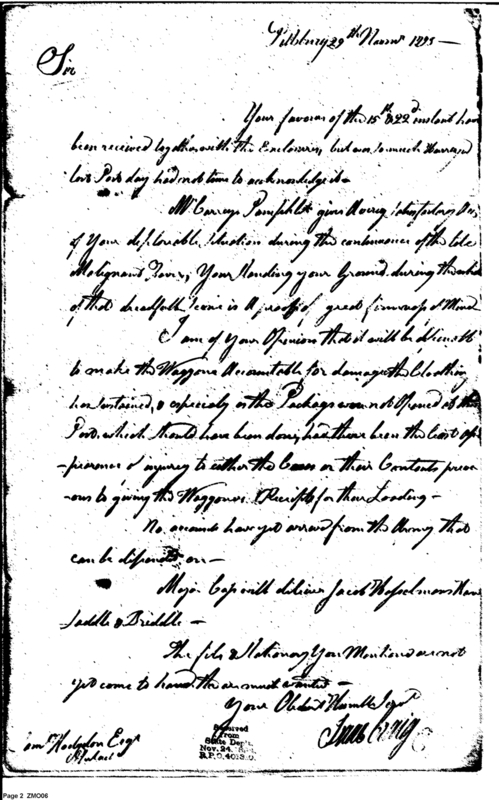 Pittsburg 29th Novemr 1793 —
Sir
Your favour of the 15th & 22d instant have
been received together with the Enclosures, but was so much Harrassed
last Post day had not time to acknowledge it —
Mr Careys Pamphlet gives a very satisfactory
of Your deplorable situation during the continuance of the late
Malignant Fever, Your standing your Ground during the whole
of that dreadfull scene is a proof of great firmness of Mind
I am of Your Opinion that it will be difficult
to make the Waggoners Accountable for damage the Cloathing
has sustained, & especially as the Packages were not Opened at this
Post, which should have been done, had there been the least ap-
-pearance of injury to either the Cases or their Contents previ-
-ous to giving the Waggoners Receipts for their Loading —
No accounts have yet arrived from the Army that
can be depended on —
Major Cass will deliver Jacob
Saddle & Briddle —
The files & Stationary You Mention are not
yet come to hand, the are much wanted —
Your Obedt Humle Servt
Isaac Craig
Hodgdon Esqr
Received
from
State Dept.
Nov. 24,
R.P.O.
Page 2 ZMO06